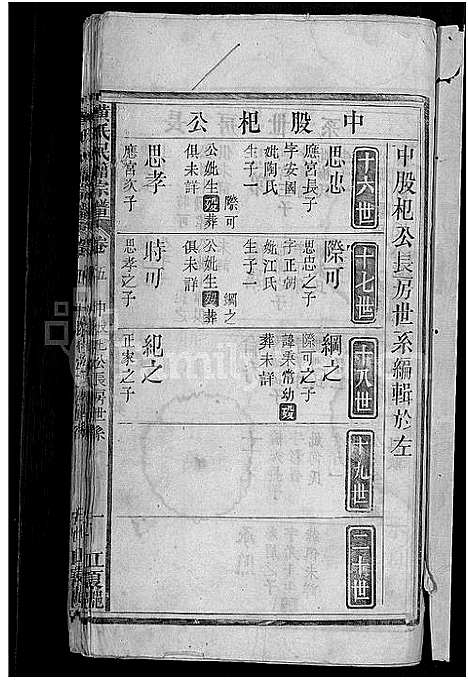 中股杞公
中股杞公長房世系編輯於左
十六世
思忠
應宮長子
字安國
妣陶氏
生子一
際可
公妣生歿葬
俱未詳
思孝
應宮次子
十七世
際可
思忠之子
字正朝
妣江氏
生子一
綱之
公妣生歿葬
俱未詳
時可
思孝之子
十八世
綱之
際可之子
諱秉常幼歿
葬未詳
紀之
正家之子
十九世
二十世
卷五
中股杞公長房世系
一
江夏